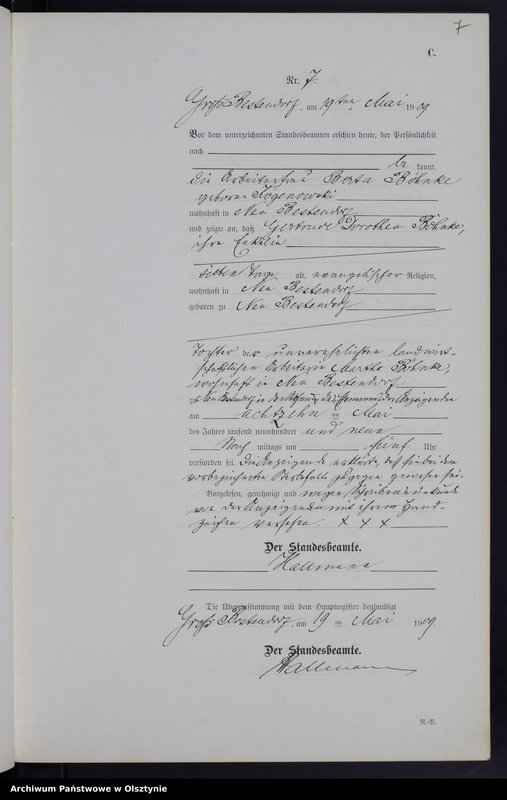 7
C.
Nr. 7.
Groß Bestendorf, am 19ten Mai 1909
Vor dem unterzeichneten Standesbeamten erschien heute, der Persönlichkeit
nach
be kannt,
die Arbeiterfrau Berta Böhnke
geborne
wohnhaft in Neu Bestendorf
und zeigte an, daß Gertrude Dorothea Böhnke,
ihre Enkelin
sieben Tage alt, evangelischer Religion,
wohnhaft in Neu Bestendorf
geboren zu Neu Bestendorf
Tochter der unverehelichten landwirt-
schaftlichen Arbeiterin Martha Böhnke,
wohnhaft in Neu Bestendorf
zu Neu Bestendorf in der Wohnung des der Anzeigenden
am achtzehn ten Mai
des Jahres tausend neunhundert und neun
Nach mittags um fünf Uhr
verstorben sei. Die Anzeigende erklärte, daß sie bei dem
vorbezeichneten Sterbefalle zugegen gewesen sei.
Vorgelesen, genehmigt und wegen Schreibensunkunde
von der Anzeigenden mit ihrem Hand-
zeichen versehen. X X X
Der Standesbeamte.
Hallmann
Die Übereinstimmung mit dem Hauptregister beglaubigt
Groß Bestendorf, am 19 ten Mai 1909.
Der Standesbeamte.
Hallmann
R.-R.
Archiwum Państwowe w Olsztynie